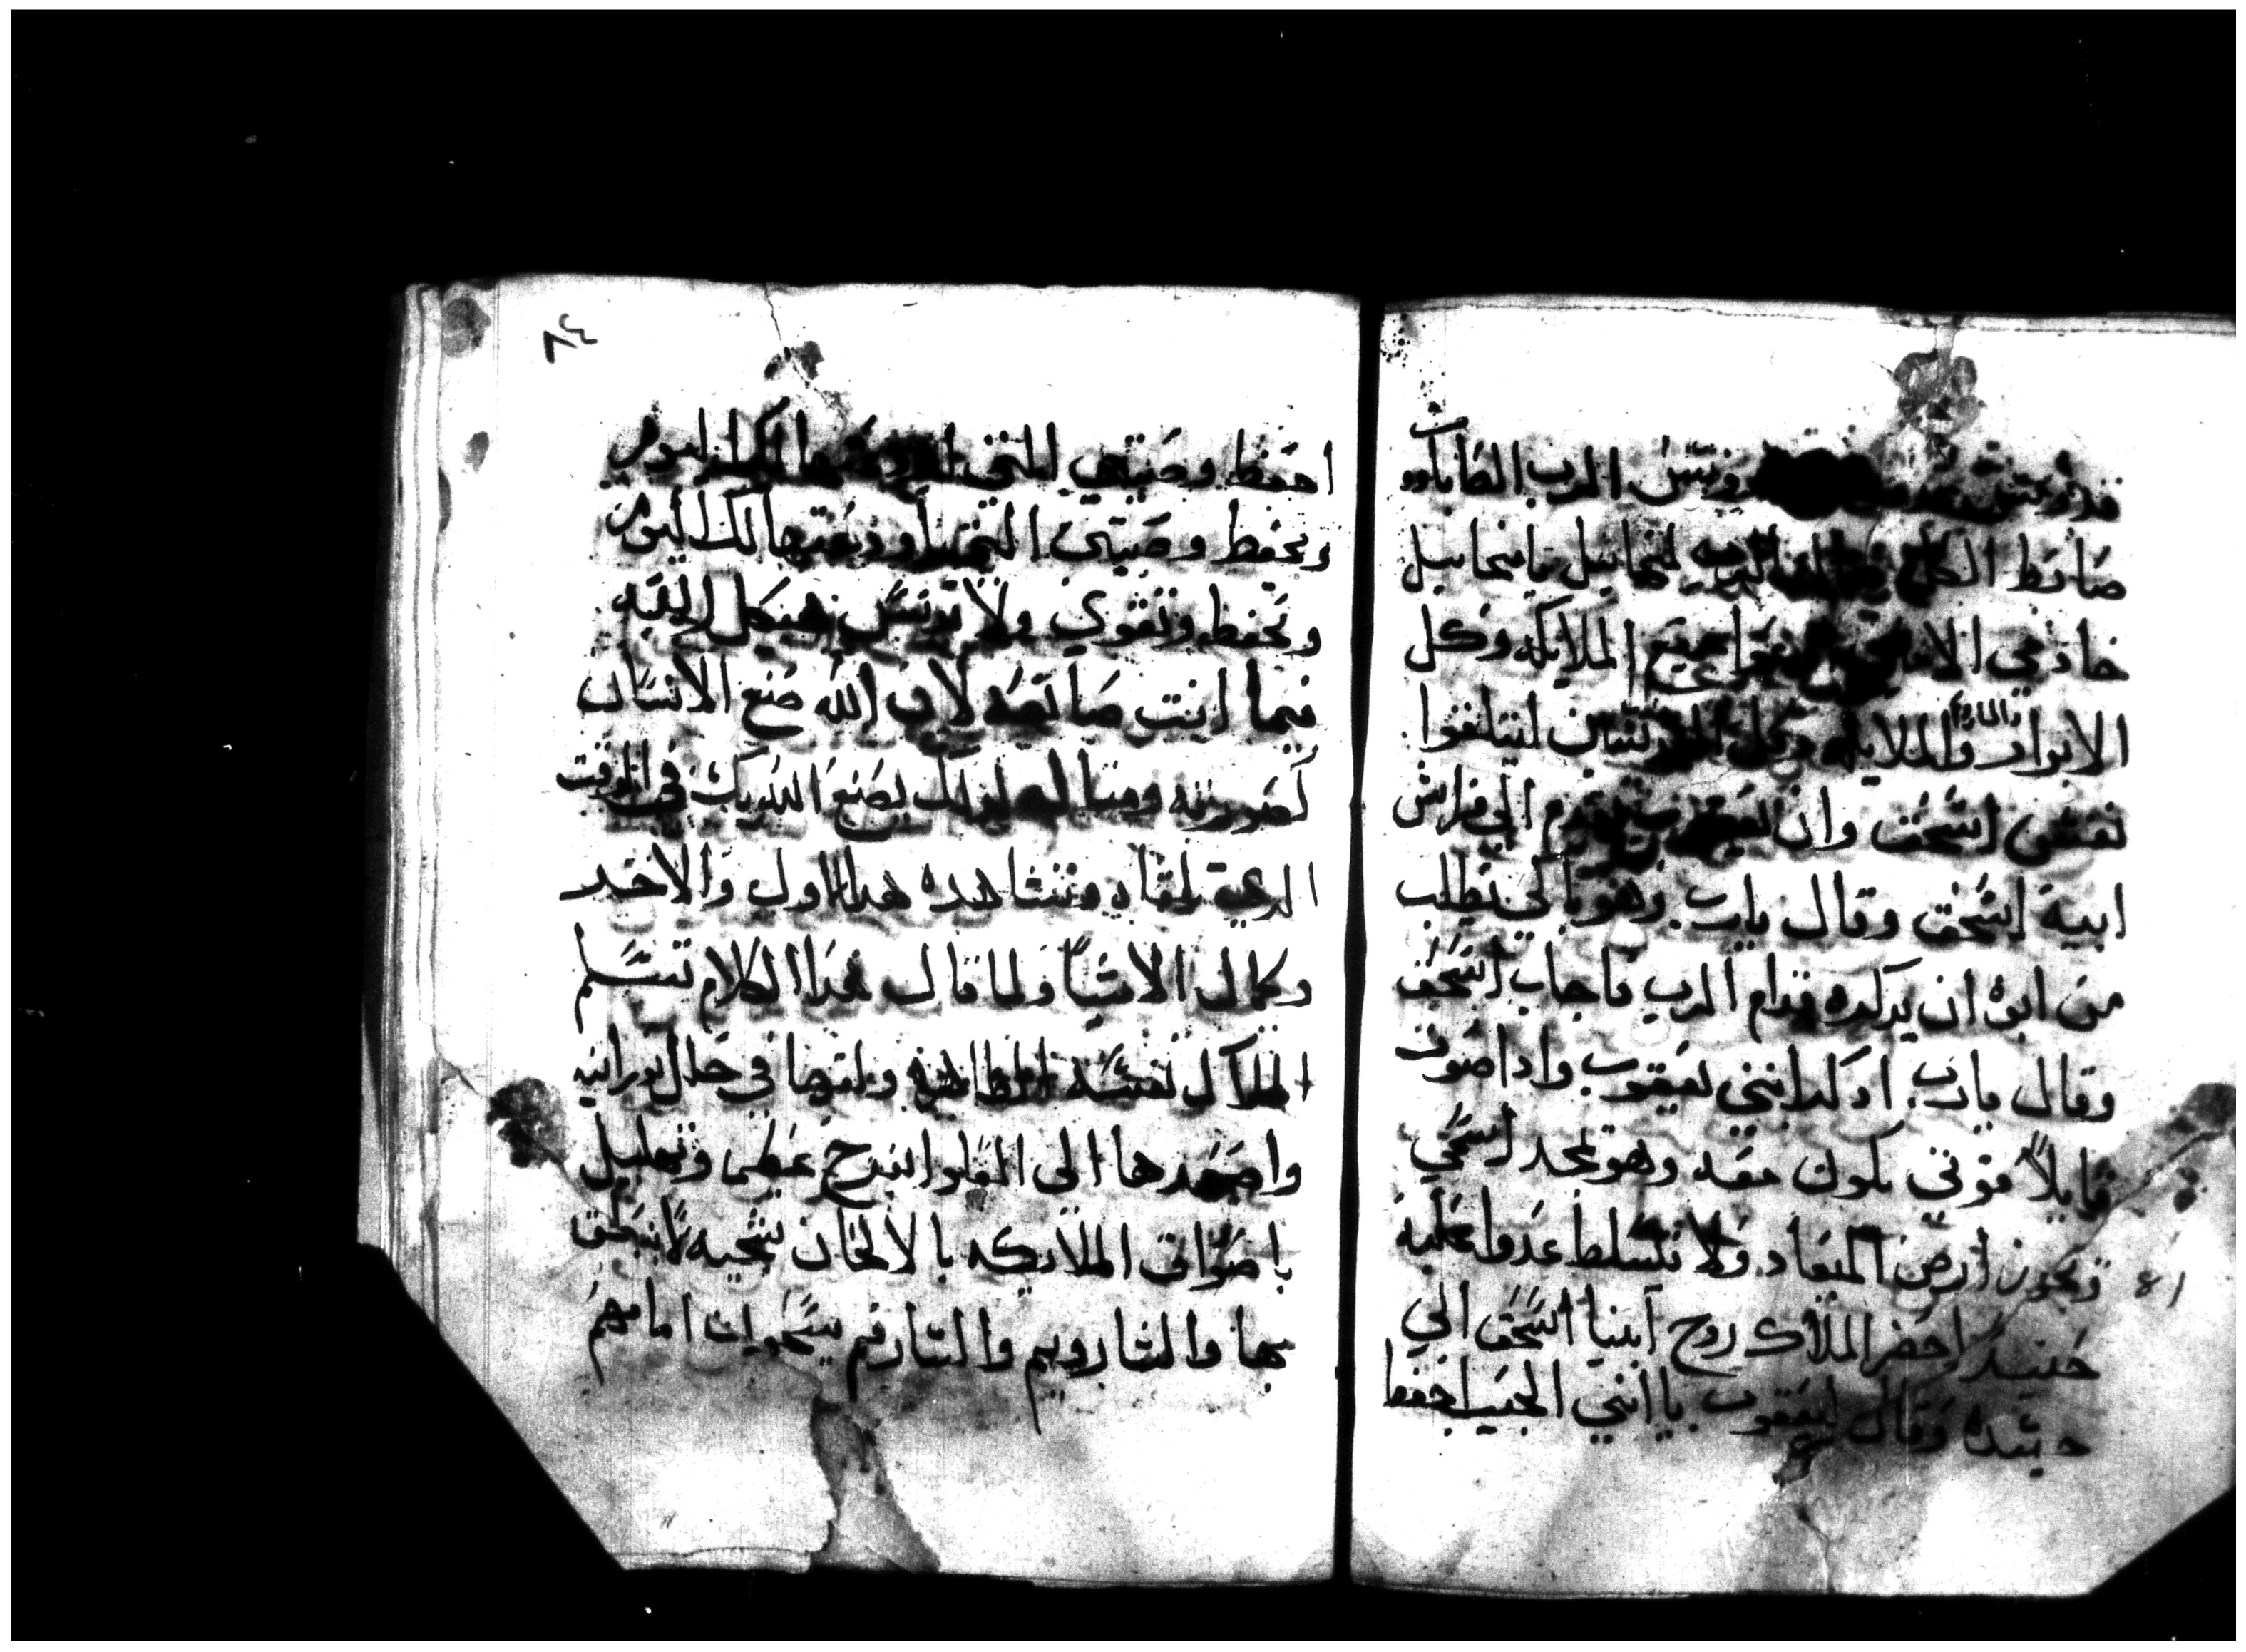 قدوس قدوس الرب الصاباووت
ضابط الكل لميخاييل ياميخاييل
خادمي الامين جميع الملايكه وكل
الابرار والملايكه ليتلقوا
نفس اسحق وان يعقوب تقدم الي فراش
ابيه اسحق وقال يارب وهو باكي يطلب
من ابوه ان يدكره قدام الرب فاجاب اسحق
وقال يارب ادكر ابني يعقوب وادا صوت
قايلاً قوتي تكون معه وهو يمجد اسمي
ويحوز ارض الميعاد ولا يتسلط عدوا عليه
حنيد احضر الملاك روح ابينا اسحق الي
حيته وقال ليعقوب يا ابني الحبيب احفظ
81
٨٤
احفظ وصيتي التي اليوم
وتحفظ وصيتي التي اودعتها لك اليوم
وتحفظ وتقوي ولا هيكل الله
فيما انت صانعه لان الله صنع الانسان
كصورته ومتاله يصنع الله بك في الوقت
الدي تلقاه وتشاهده هدا الاول والاخير
وكمال الاشيا ولما قال هدا الكلام تسلم
الملاك نفسه الطاهره ولفها في حلل نورانيه
واصعدها الي العلوا بفرح عظيم وتهليل
باصوات الملايكه بالالحان شجيه لا ينطق
بها والشاروبيم والسارفيم يسبحوان امامهم